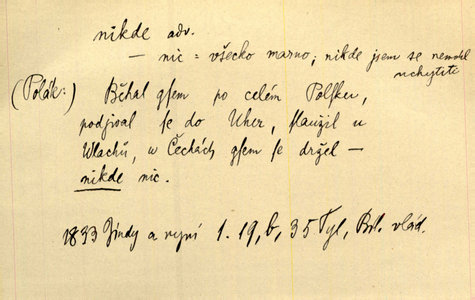 nikde adv.
— nic = všecko marno; nikde jsem se nemohl
uchytiti
(Polák:) Běhal gsem po celém Polsku,
podjwal se do Uher, slaužil u
Wlachů, w Čechách gsem se držel —
nikde nic.
1833 Jindy a nyní 1. 19, b, 35 Tyl, Brt. vlád.